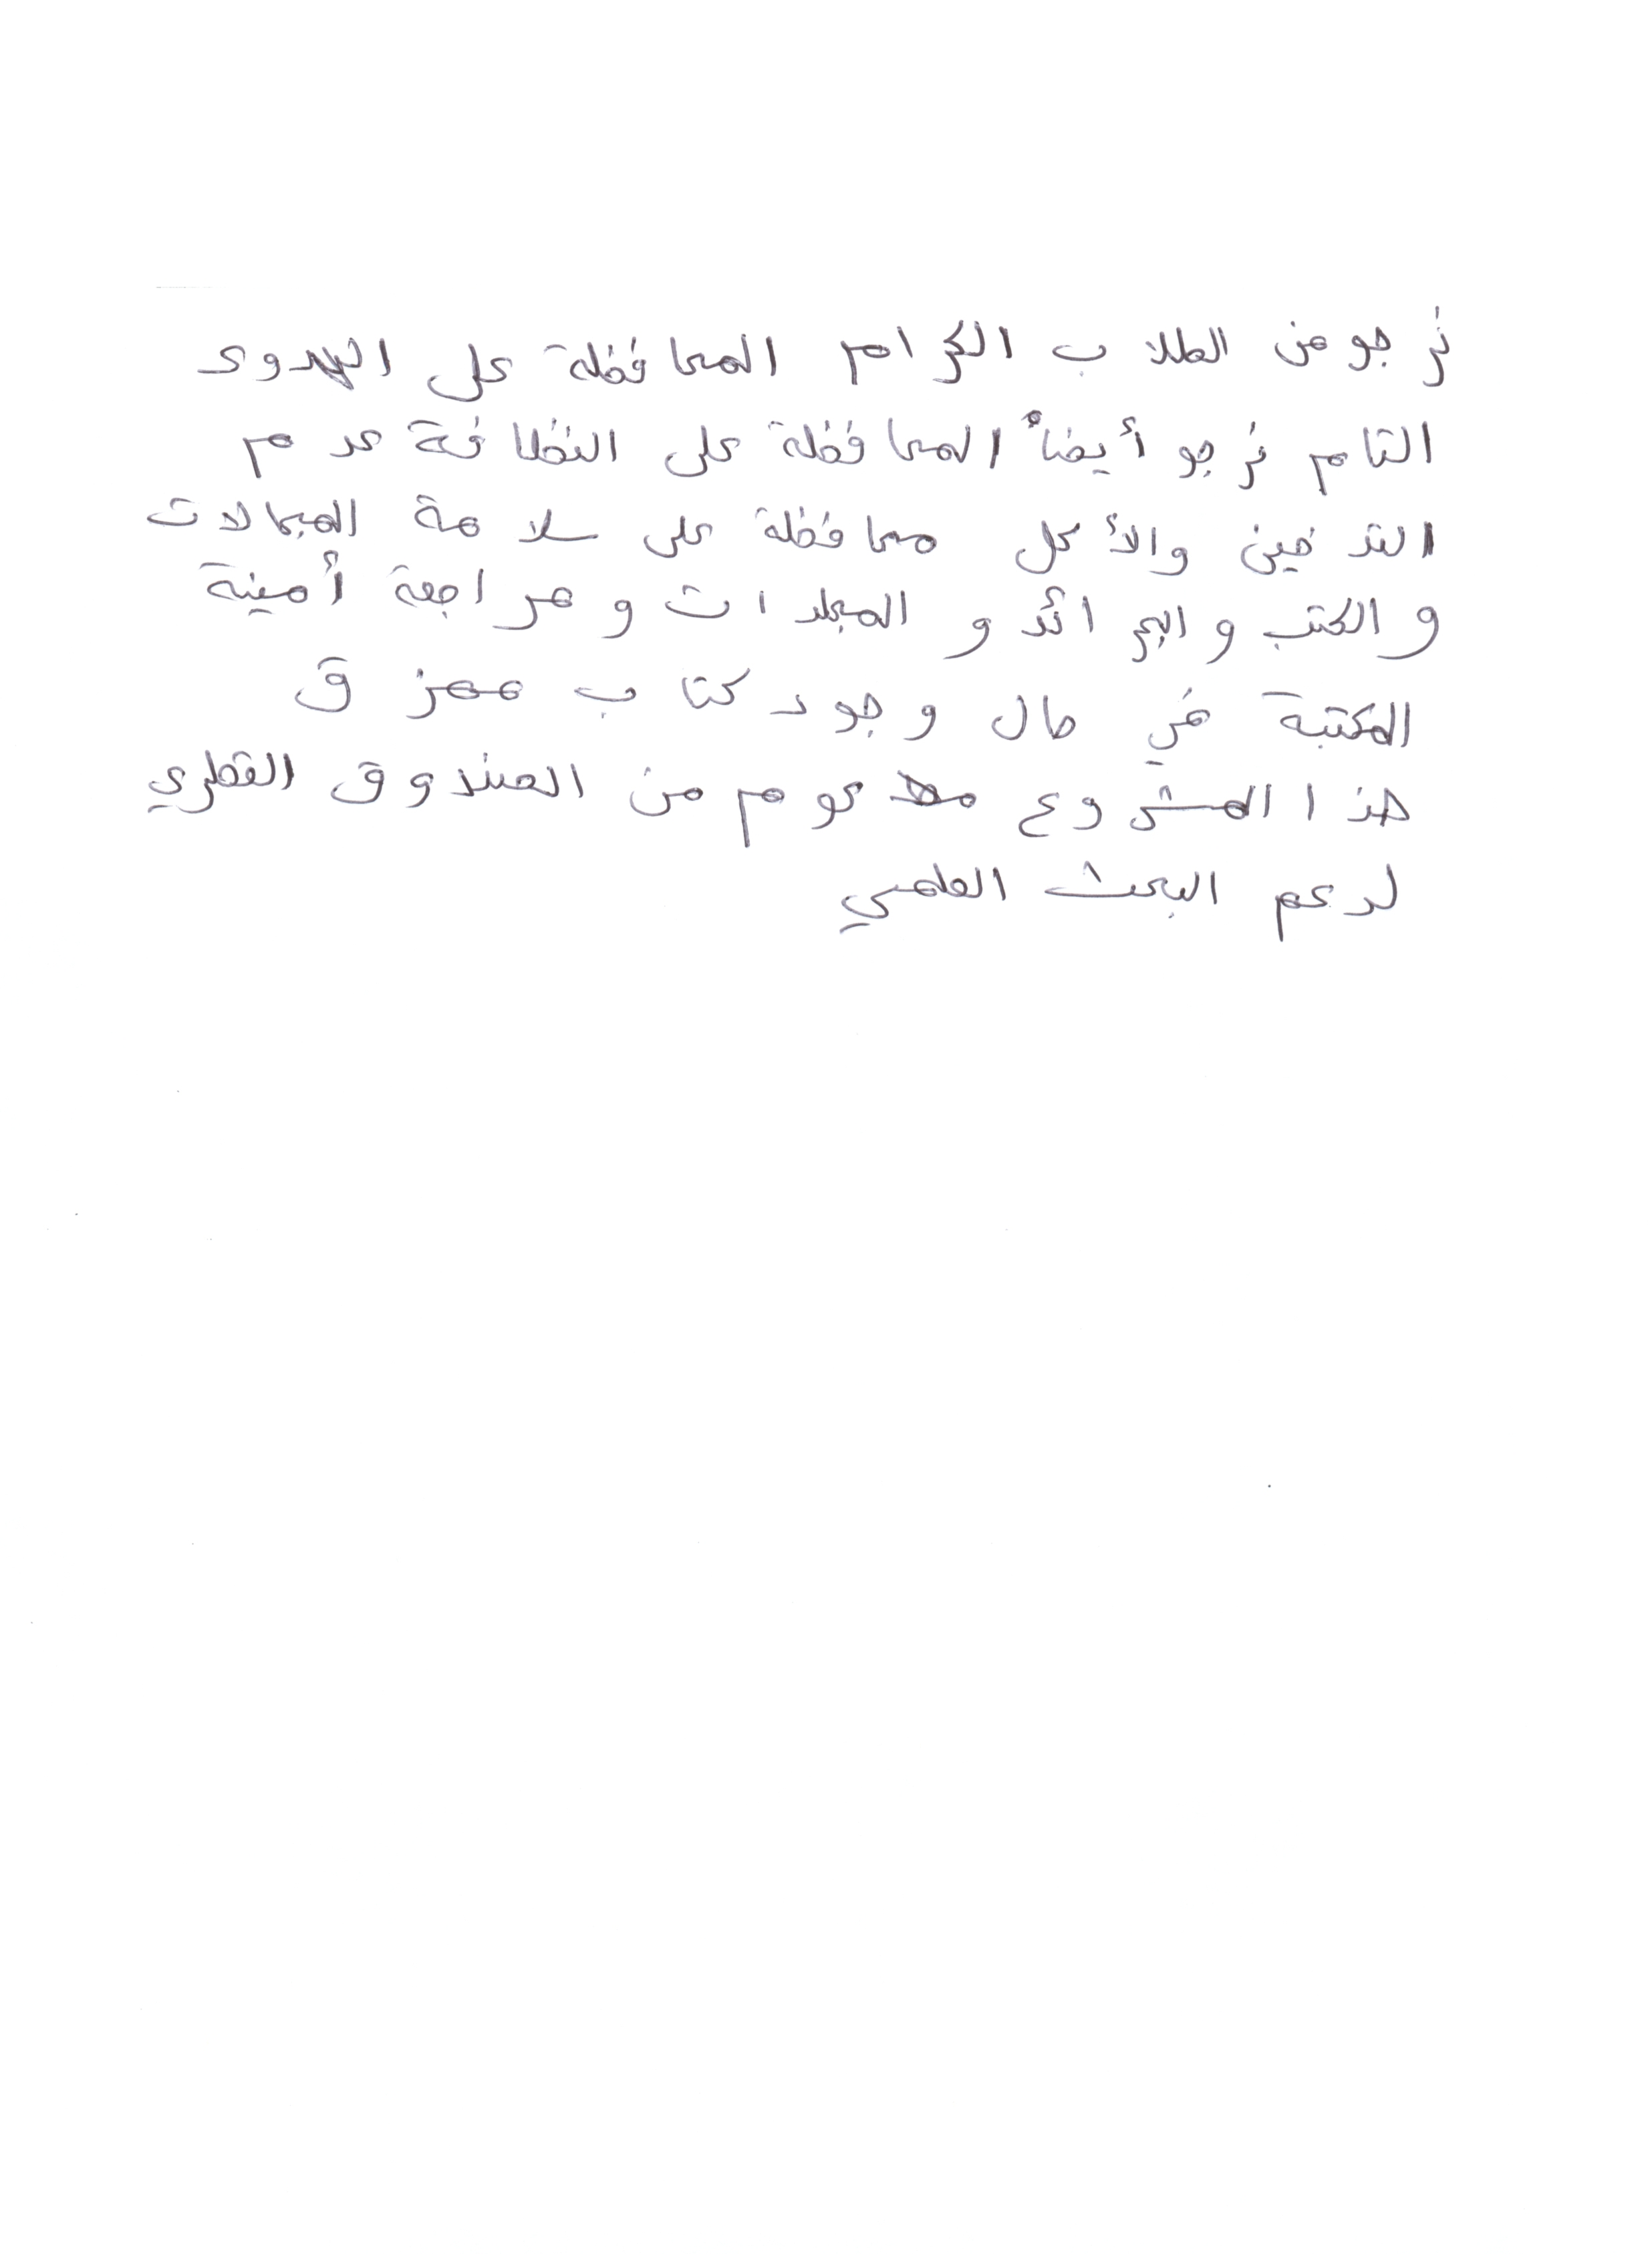 نرجو من الطلاب الكرام المحافظة على الهدوى
التام نرجو أيضاً المحافظة على النظافة عدم
التدخين والأكل محافظة على سلامة المجالات
والكتب والجرائد و المجلدات ومراجعة أمينة
المكتبة في حال وجود كتاب ممزق
هذا المشروع مدعوم من الصندوق القطري
لدعم البحث العلمي